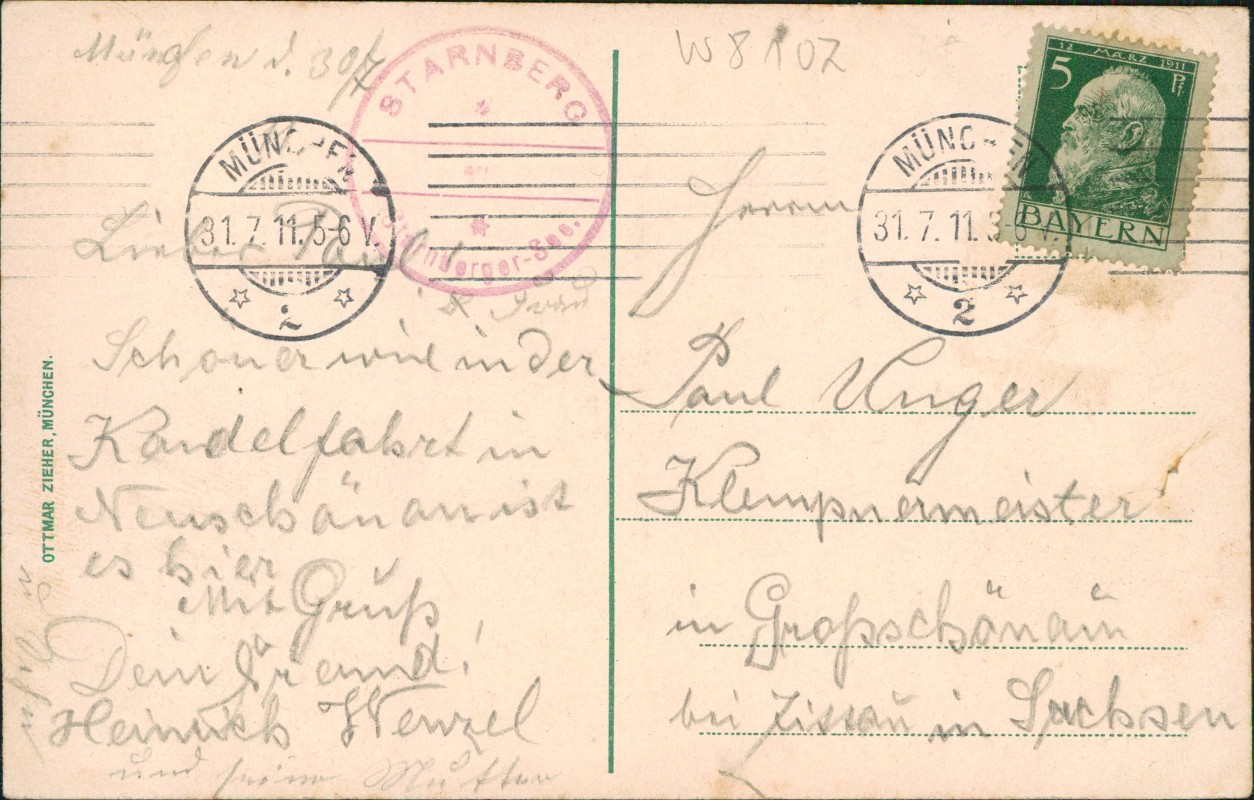 München d. 30/7
STARNBERG
Starnberger-See.
MÜNCHEN
31. 7. 11. 5-6 V.
2
Lieber Paul!
& Frau
Schöner wie in der
Kandelfahrt in
Neuschönau ist
es hier
Mit Gruß
Dein Freund!
Heinrich Wenzel
und seine Mutter
OTTMAR ZIEHER, MÜNCHEN.
W8102
12 MÄRZ 1911
5 Pf
BAYERN
MÜNCHEN
31. 7. 11. 5-6 V.
2
Herrn
Paul Unger
Klempnermeister
in Großschönau
bei Zittau in Sachsen